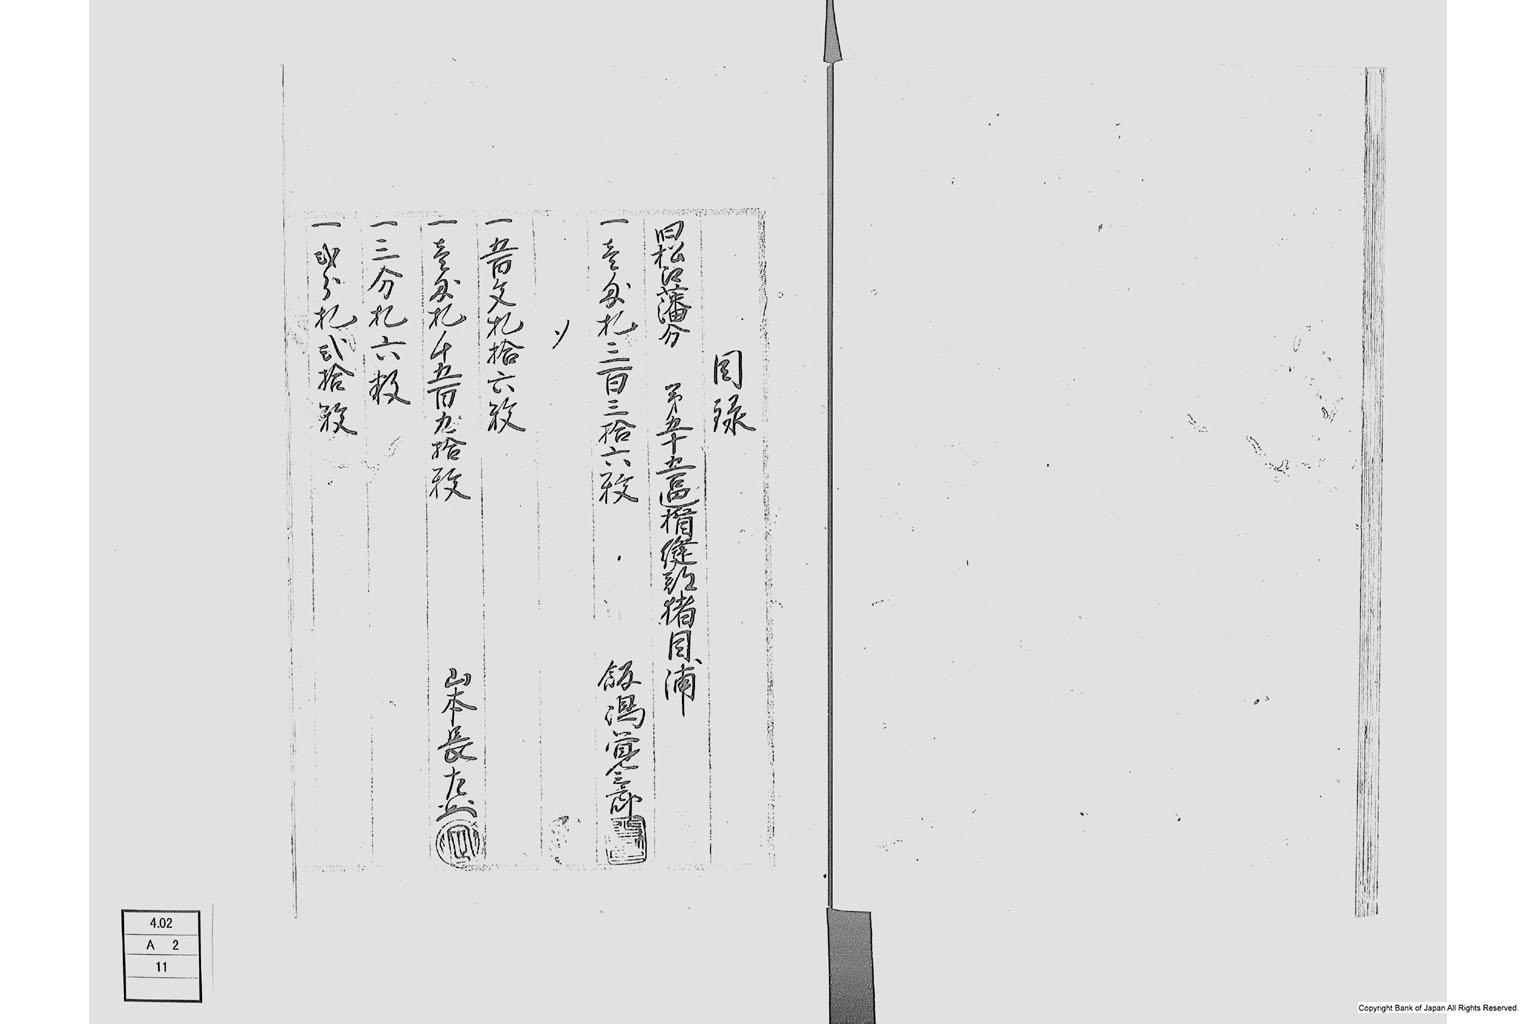 目録
旧松江藩分 第五十五區楯縫郡猪目浦
一壱匁札三百三拾六枚 飯塚覚三郎
〃
一五百文札拾六枚
一壱匁札千五百九拾枚 山本長左衛
一三分札六枚
一弐分札弐拾枚
4.02
A 2
11
Copyright Bank of Japan All Rights Reserved.